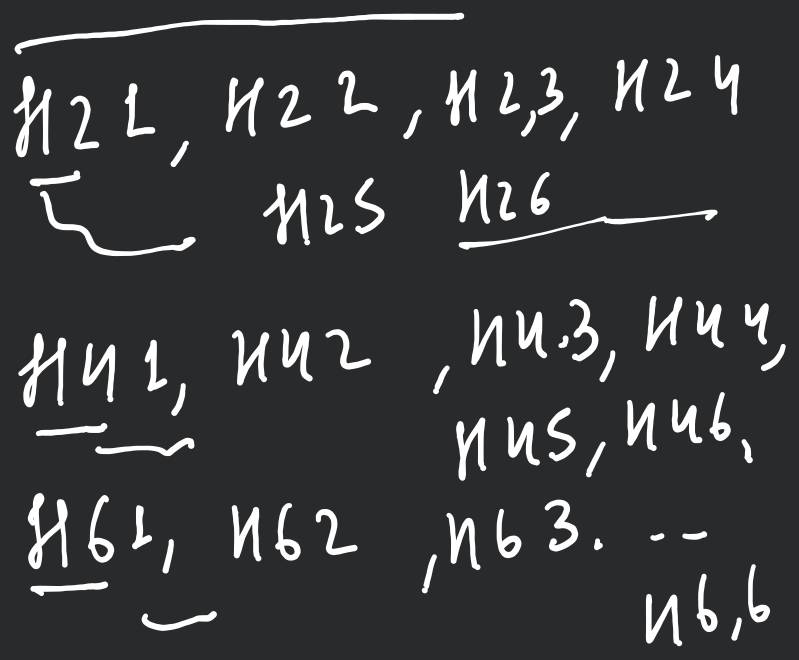 H21, H22, H2,3, H24
H25 H26
H41, H42, H4.3, H44,
H45, H46,
H61, H62, H63. --
H6,6